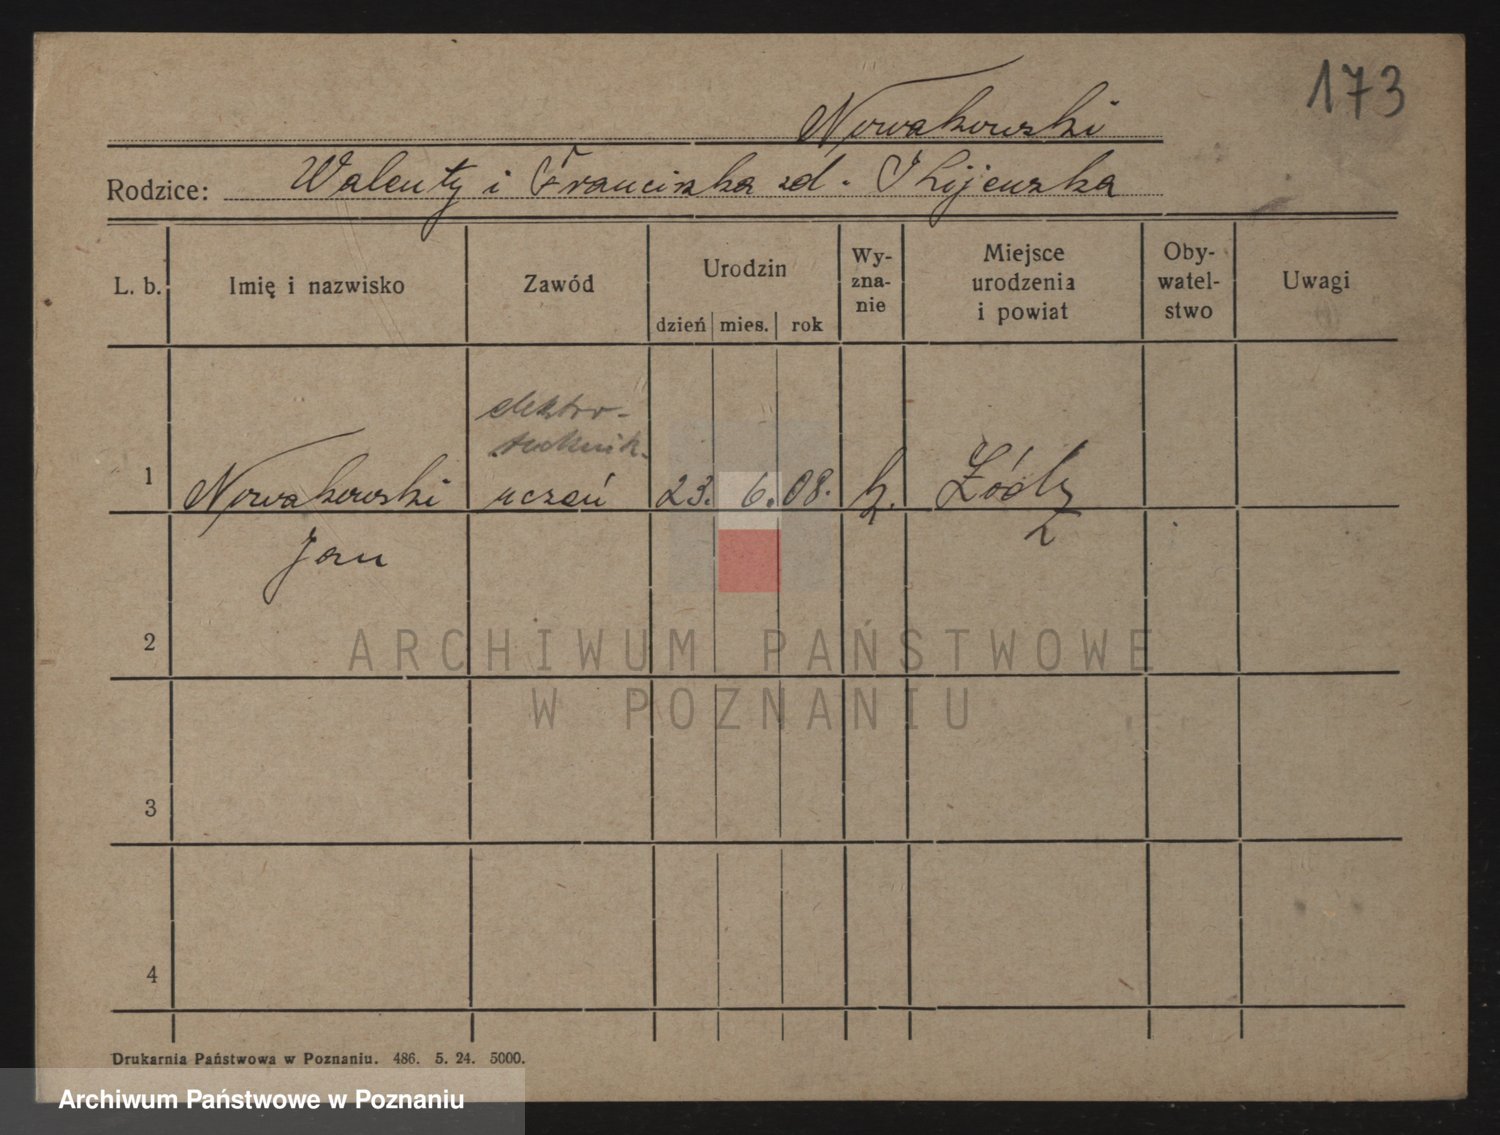 173
Nowakowski
Rodzice: Walenty i Franciszka zd. Kijewska
L. b.
Imię i nazwisko
Zawód
Urodzin
dzień mies. rok
Wy-
zna-
nie
Miejsce
urodzenia
i powiat
Oby-
watel-
stwo
Uwagi
elektro-
technik.
1 Nowakowski uczeń 23. 6. 08. k. Łódź
Jan
2
3
4
ARCHIWUM PAŃSTWOWE
W POZNANIU
Drukarnia Państwowa w Poznaniu. 486. 5. 24. 5000.
Archiwum Państwowe w Poznaniu